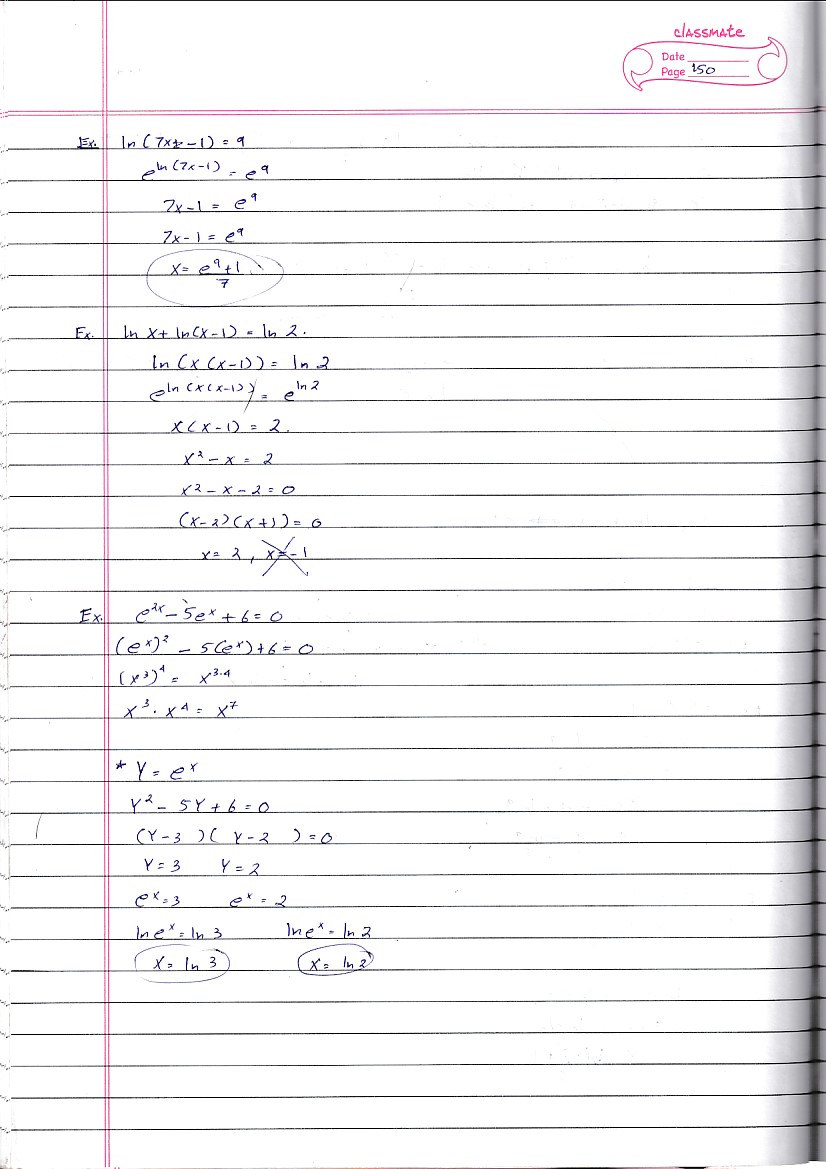 classmate
Date
Page 150
Ex. ln(7x - 1) = 9
e^ln(7x-1) = e^9
7x-1 = e^9
7x-1 = e^9
x = (e^9+1)/7
Ex. ln x + ln(x-1) = ln 2.
ln(x(x-1)) = ln 2
e^ln(x(x-1)) = e^ln2
x(x-1) = 2.
x² - x = 2
x² - x - 2 = 0
(x-2)(x+1) = 0
x = 2, x = -1
Ex. e^2x - 5e^x + 6 = 0
(e^x)² - 5(e^x) + 6 = 0
(x³)⁴ = x^3·4
x³ · x⁴ = x⁷
* Y = e^x
Y² - 5Y + 6 = 0
(Y-3)(Y-2) = 0
Y = 3 Y = 2
e^x = 3 e^x = 2
ln e^x = ln 3 ln e^x = ln 2
x = ln 3 x = ln 2